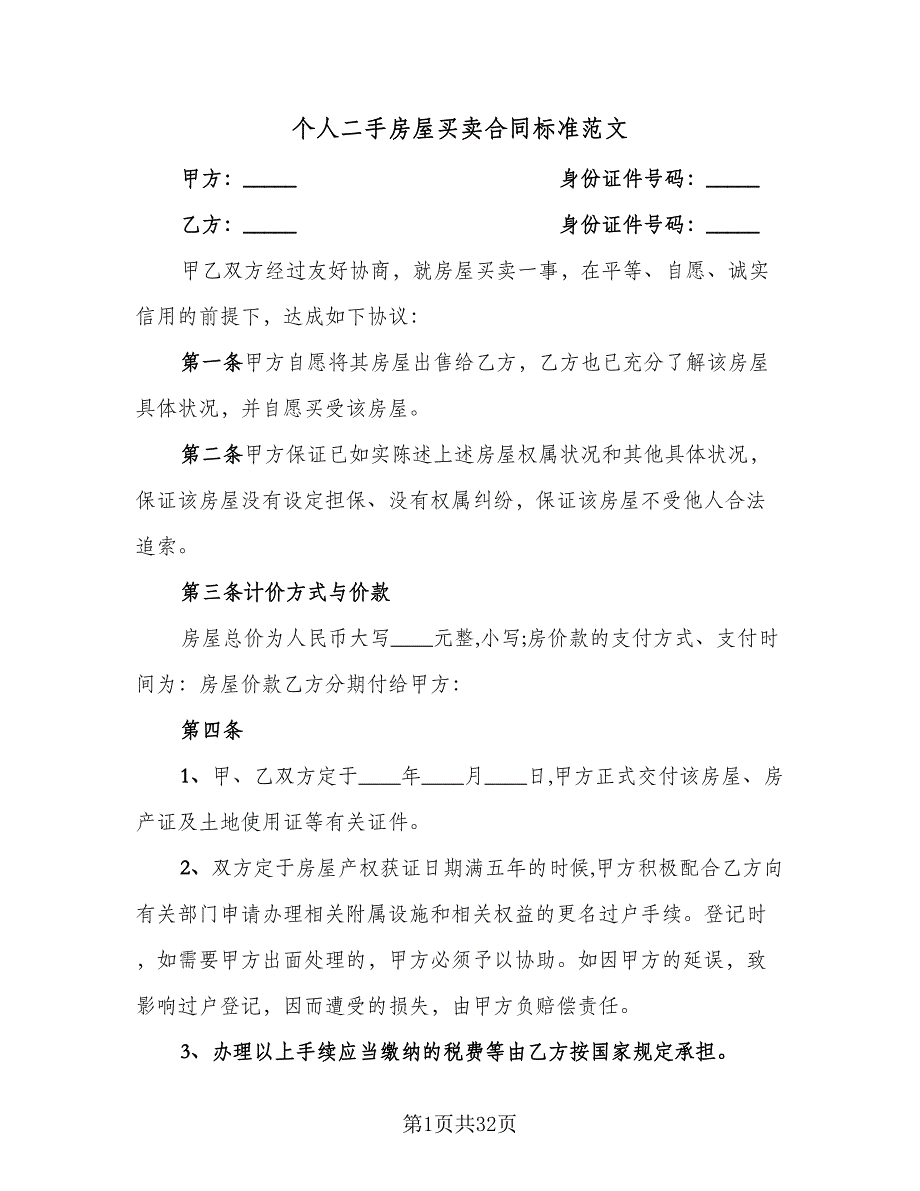 个人二手房屋买卖合同标准范文
甲方：_____ 身份证件号码：_____
乙方：_____ 身份证件号码：_____
甲乙双方经过友好协商，就房屋买卖一事，在平等、自愿、诚实
信用的前提下，达成如下协议：
第一条甲方自愿将其房屋出售给乙方，乙方也已充分了解该房屋
具体状况，并自愿买受该房屋。
第二条甲方保证已如实陈述上述房屋权属状况和其他具体状况，
保证该房屋没有设定担保、没有权属纠纷，保证该房屋不受他人合法
追索。
第三条计价方式与价款
房屋总价为人民币大写____元整,小写;房价款的支付方式、支付时
间为：房屋价款乙方分期付给甲方：
第四条
1、甲、乙双方定于____年____月____日,甲方正式交付该房屋、房
产证及土地使用证等有关证件。
2、双方定于房屋产权获证日期满五年的时候,甲方积极配合乙方向
有关部门申请办理相关附属设施和相关权益的更名过户手续。登记时
，如需要甲方出面处理的，甲方必须予以协助。如因甲方的延误，致
影响过户登记，因而遭受的损失，由甲方负赔偿责任。
3、办理以上手续应当缴纳的税费等由乙方按国家规定承担。
第1页共32页